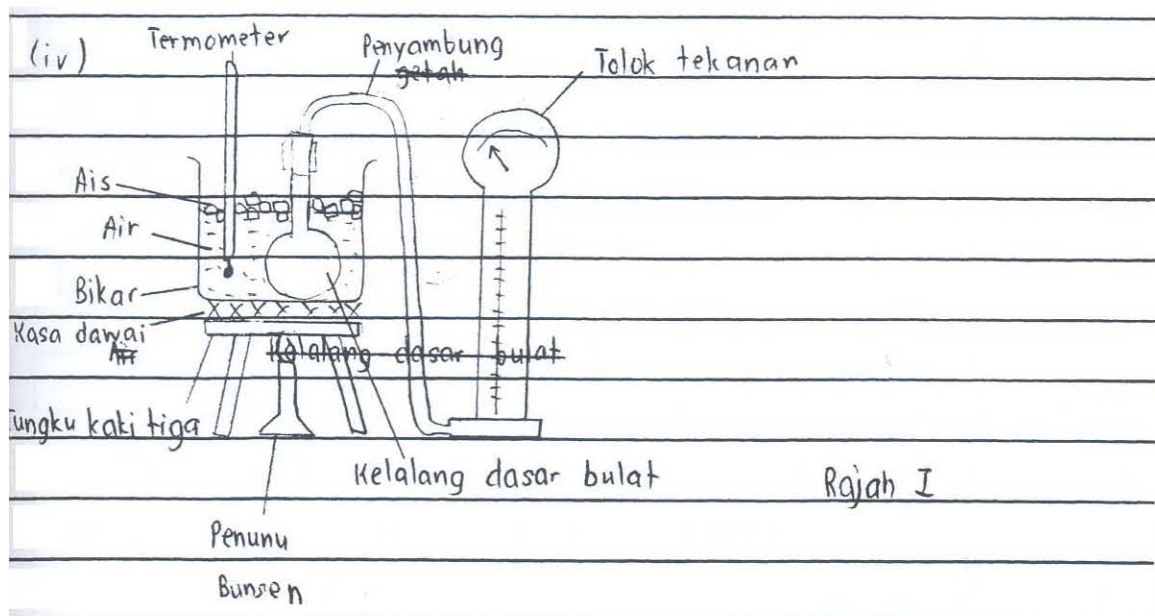 (iv)
Termometer
Penyambung
getah
Tolok tekanan
Ais
Air
Bikar
Kasa dawai
Air
Kelalang dasar bulat
ungku kaki tiga
Kelalang dasar bulat
Rajah I
Penunu
Bunsen